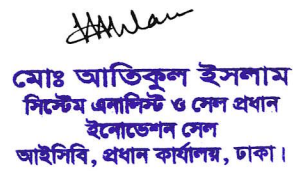 মোঃ আতিকুল ইসলাম
সিস্টেম এনালিস্ট ও সেল প্রধান
ইনোভেশন সেল
আইসিবি, প্রধান কার্যালয়, ঢাকা।